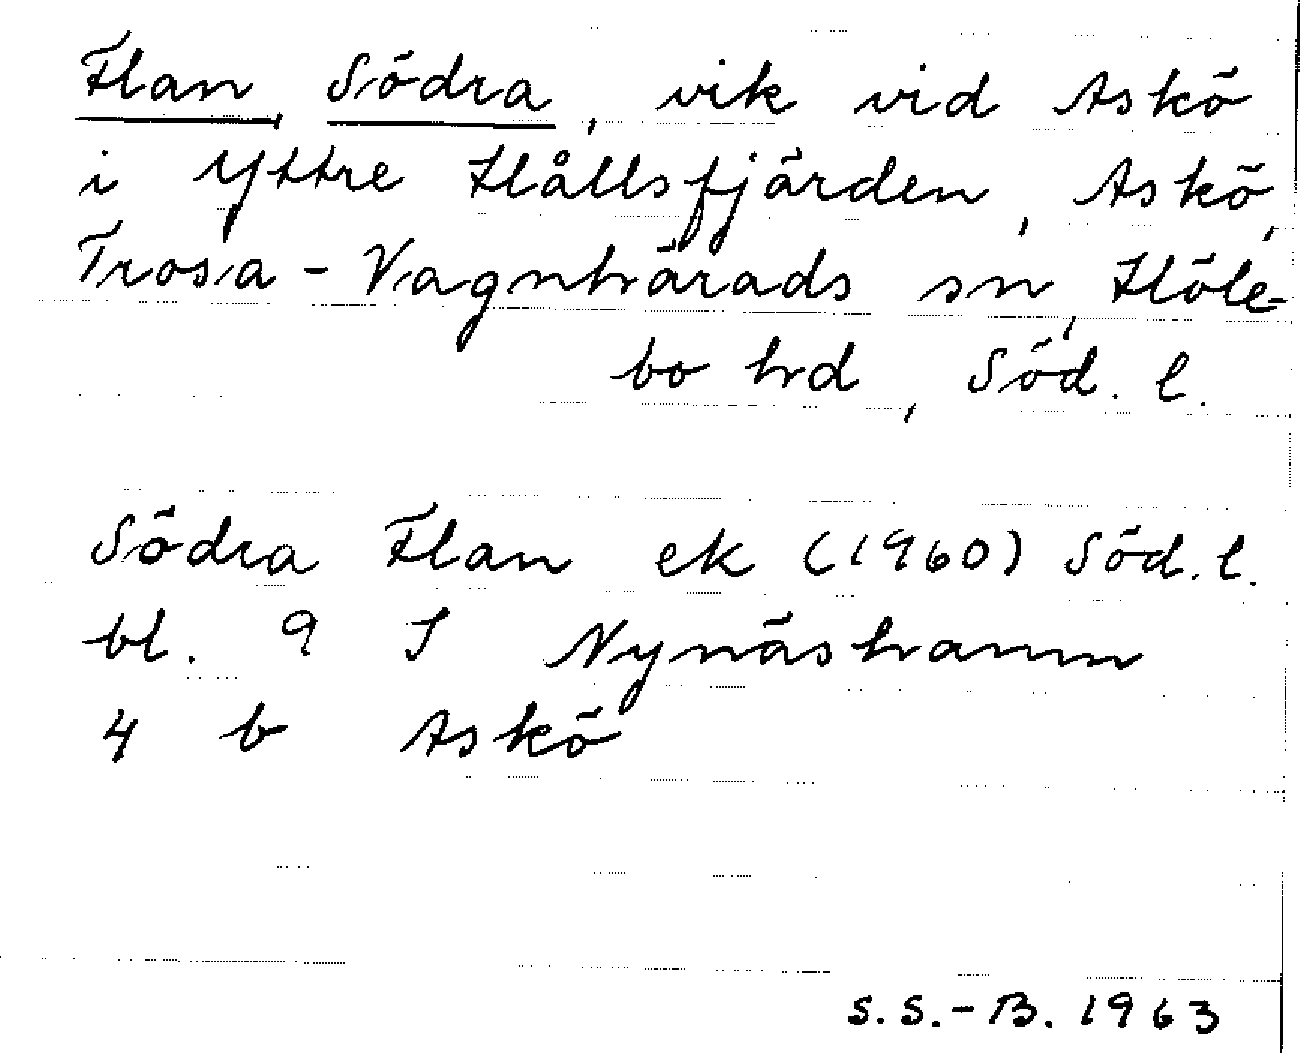 Flan, Södra, vik vid Askö
i Yttre Hållsfjärden, Askö,
Trosa-Vagnhärads sn, Höle-
bo hrd, Söd. l.
Södra Flan ek (1960) Söd. l.
bl. 9 I Nynäshamn
4 b Askö
S.S.-B. 1963